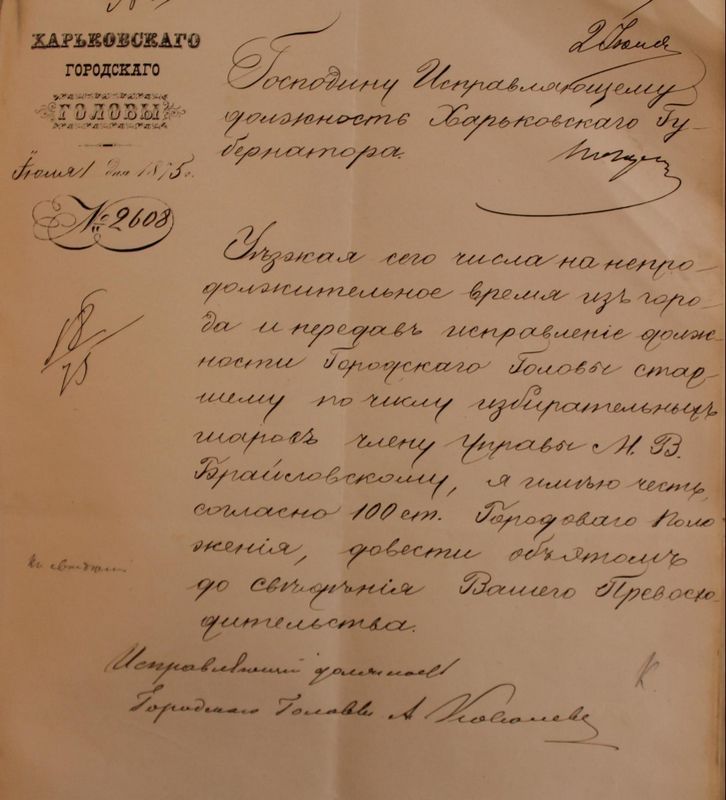 ХАРЬКОВСКАГО
ГОРОДСКАГО
ГОЛОВЫ
Іюля 1 дня 1875 г.
№ 2608
2 Іюля
Господину Исправляющему
должность Харьковскаго Гу-
бернатора.
Уѣзжая сего числа на непро-
должительное время изъ горо-
да и передавъ исправленіе долж-
ности Городскаго Головы стар-
шему по числу избирательныхъ
шаровъ члену Управы М. В.
Браиловскому, я имѣю честь,
согласно 100 ст. Городоваго Поло
женія, довести объ этомъ
до свѣдѣнія Вашего Превосхо-
дительства.
Къ свѣдѣнію
Исправляющій должность
Городскаго Головы А.
К.